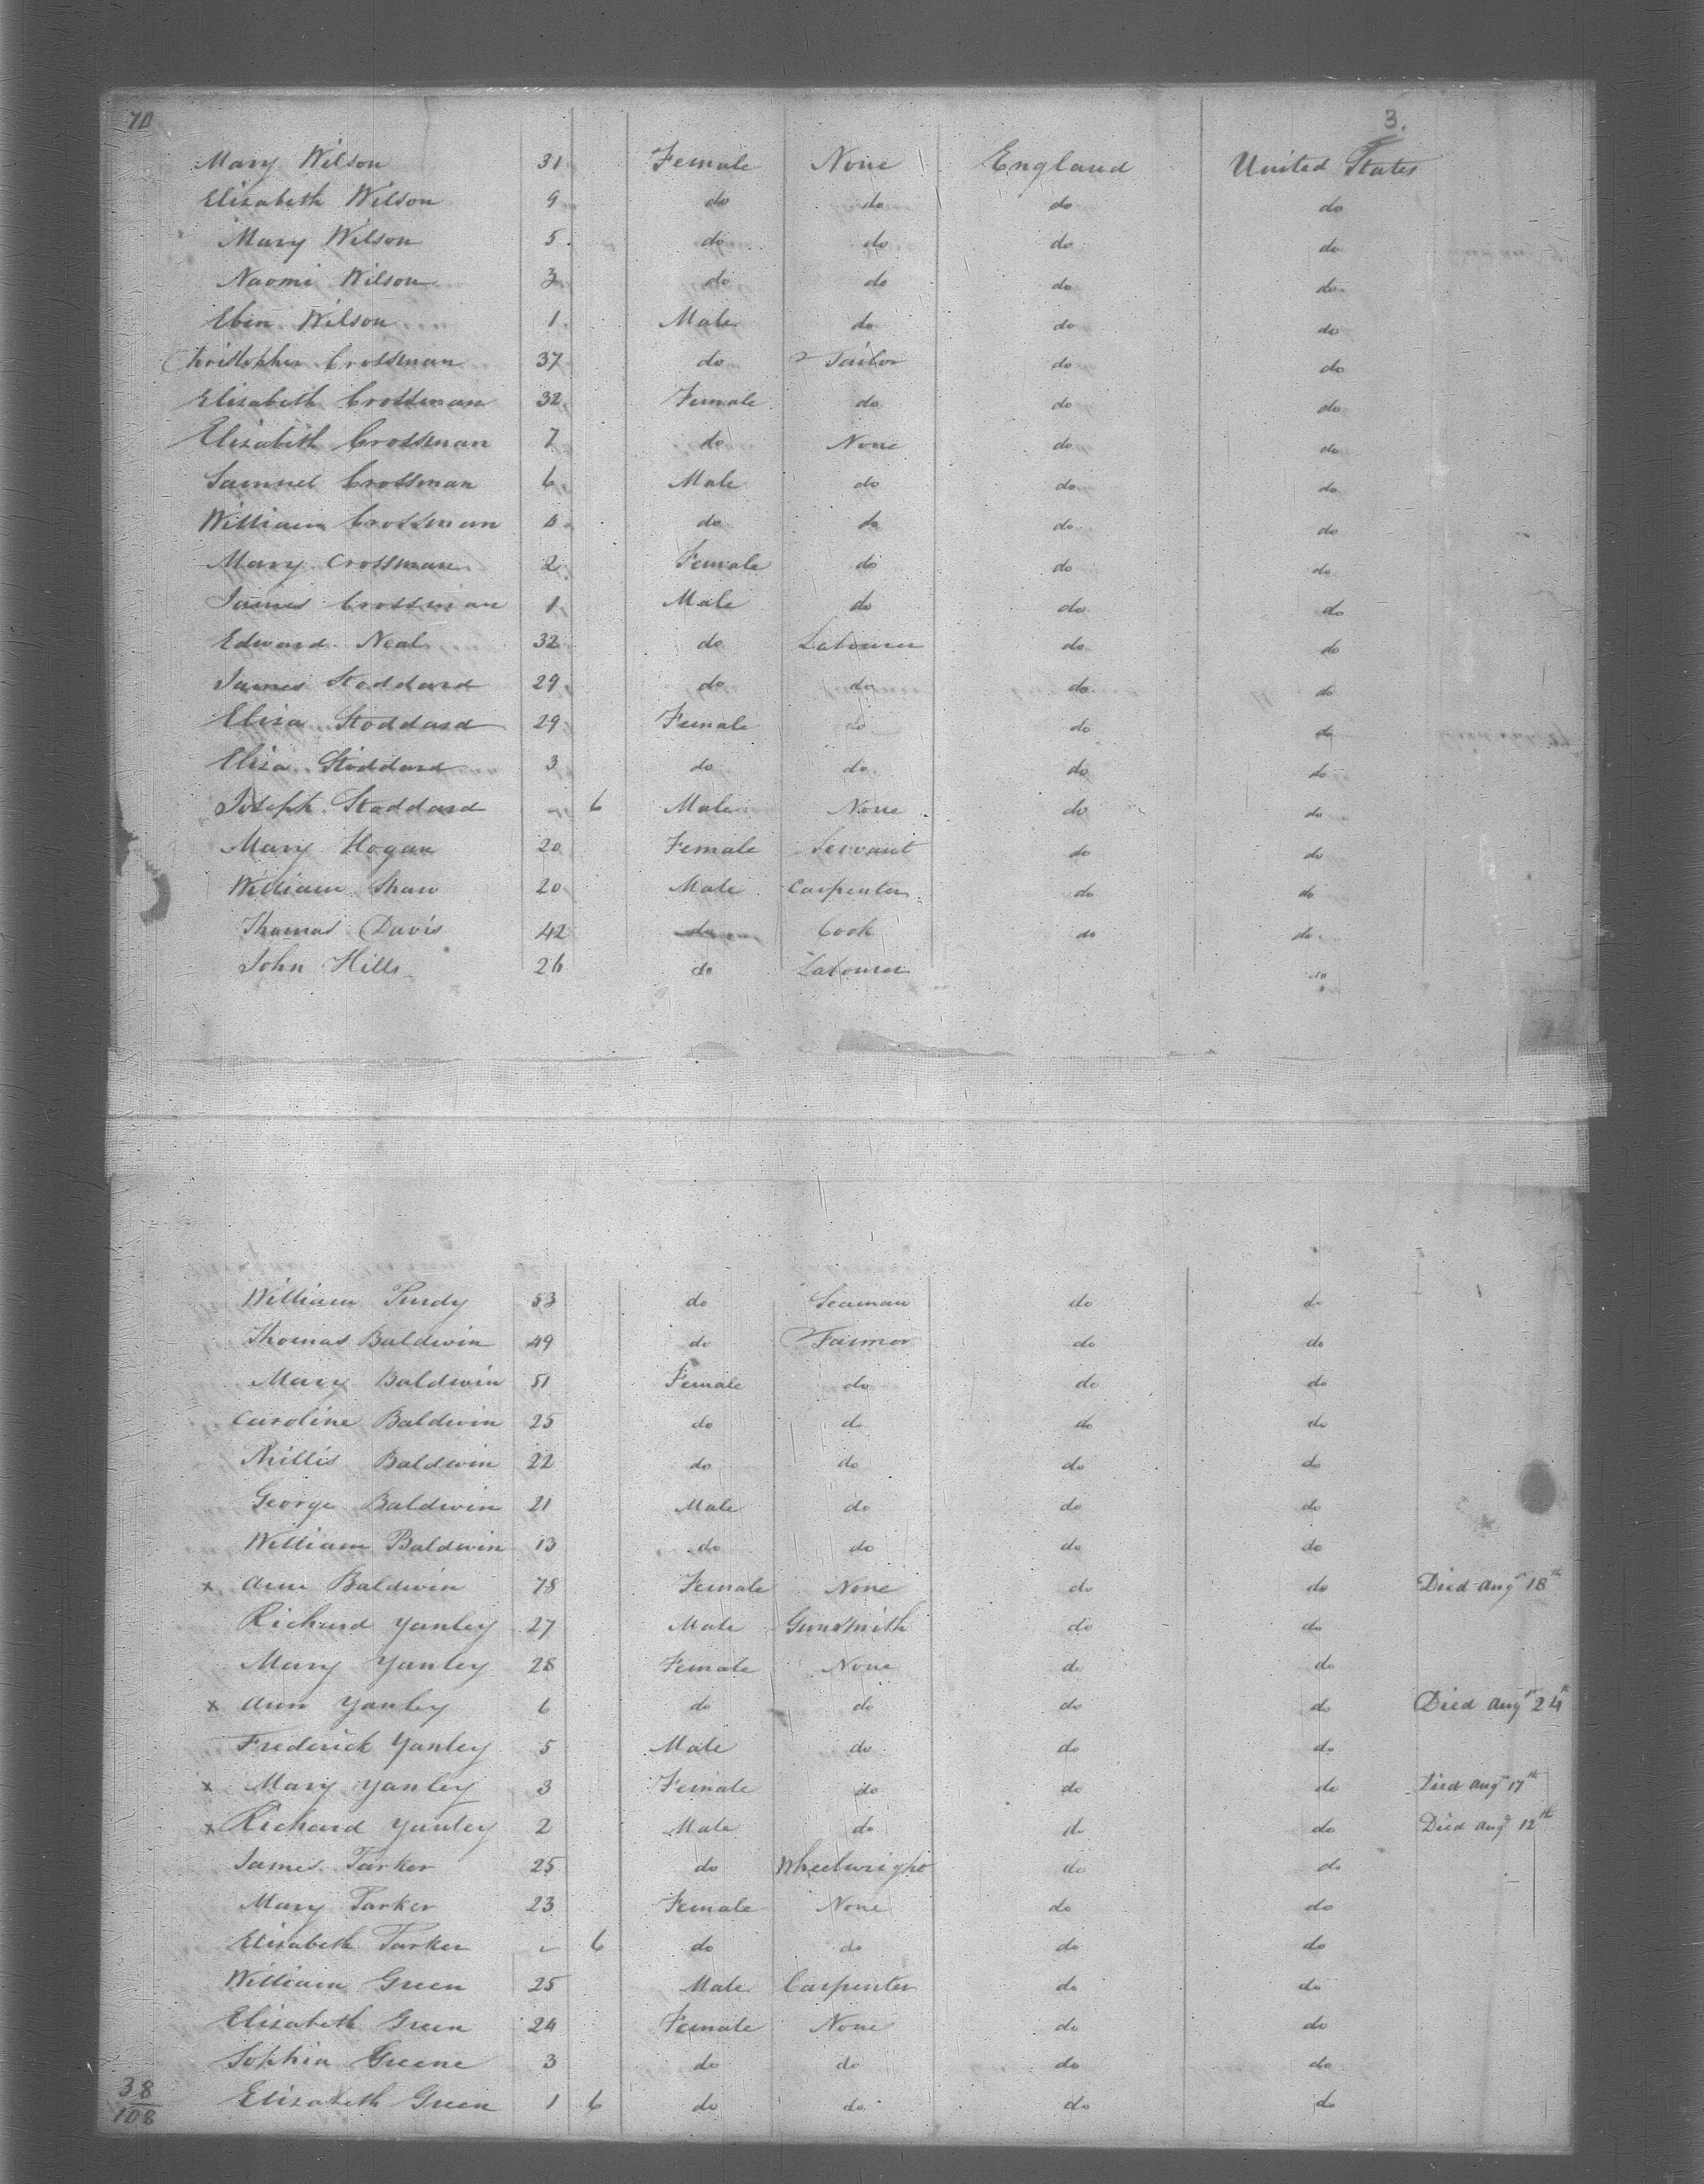 70 3.
Mary Wilson 31 Female None England United States
Elizabeth Wilson 9 do do do do
Mary Wilson 5 do do do do
Naomi Wilson 3 do do do do
Eben Wilson 1 Male do do do
Christopher Crossman 37 do Tailor do do
Elisabeth Crossman 32 Female do do do
Elizabeth Crossman 7 do None do do
Samuel Crossman 6 Male do do do
William Crossman do do do do
Mary Crossman 2 Female do do do
James Crossman 1 Male do do do
Edward Neal 32 do Labourer do do
James Stoddard 29 do do do do
Eliza Stoddard 29 Female do do do
Eliza Stoddard 3 do do do do
Joseph Stoddard 6 Male None do do
Mary Hogan 20 Female Servant do do
William Shaw 20 Male Carpenter do do
Thomas Davis 42 do Cook do do
John Hills 26 do Labourer do
William Purdy 53 do Seaman do do
Thomas Baldwin 49 do Farmer do do
Mary Baldwin 51 Female do do do
Caroline Baldwin 25 do do do do
Baldwin 22 do do do do
George Baldwin 21 Male do do do
William Baldwin 13 do do do do
x Ann Baldwin 78 Female None do do Died Augt 18th
Richard Yanley 27 Male Gunsmith do do
Mary Yanley 28 Female None do do
x Ann Yanley 6 do do do do Died Augt 24th
Frederick Yanley 5 Male do do do
x Mary Yanley 3 Female do do do Died Augt 17th
x Richard Yanley 2 Male do do do Died Augt 12th
James Tarker 25 do Wheelwright do do
Mary Tarker 23 Female None do do
Elizabeth Tarker 6 do do do do
William Green 25 Male Carpenter do do
Elizabeth Green 24 Female None do do
Sophia Greene 3 do do do do
38
108 Elizabeth Green 1 6 do do do do